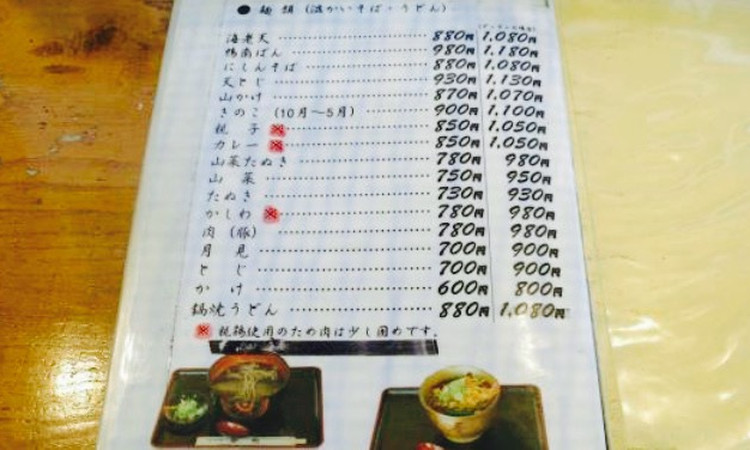 ● 麺類（温かいそば・うどん）
海老天 880円 1,080円
鴨南ばん 980円 1,180円
にしんそば 880円 1,080円
天とじ 930円 1,130円
山かけ 870円 1,070円
きのこ（10月〜5月） 900円 1,100円
親子※ 850円 1,050円
カレー※ 850円 1,050円
山菜たぬき 780円 980円
山菜 750円 950円
たぬき 730円 930円
かしわ※ 780円 980円
肉（豚） 780円 980円
月見 700円 900円
とじ 700円 900円
かけ 600円 800円
鍋焼うどん 880円 1,080円
※ 親鶏使用のため肉は少し固めです。